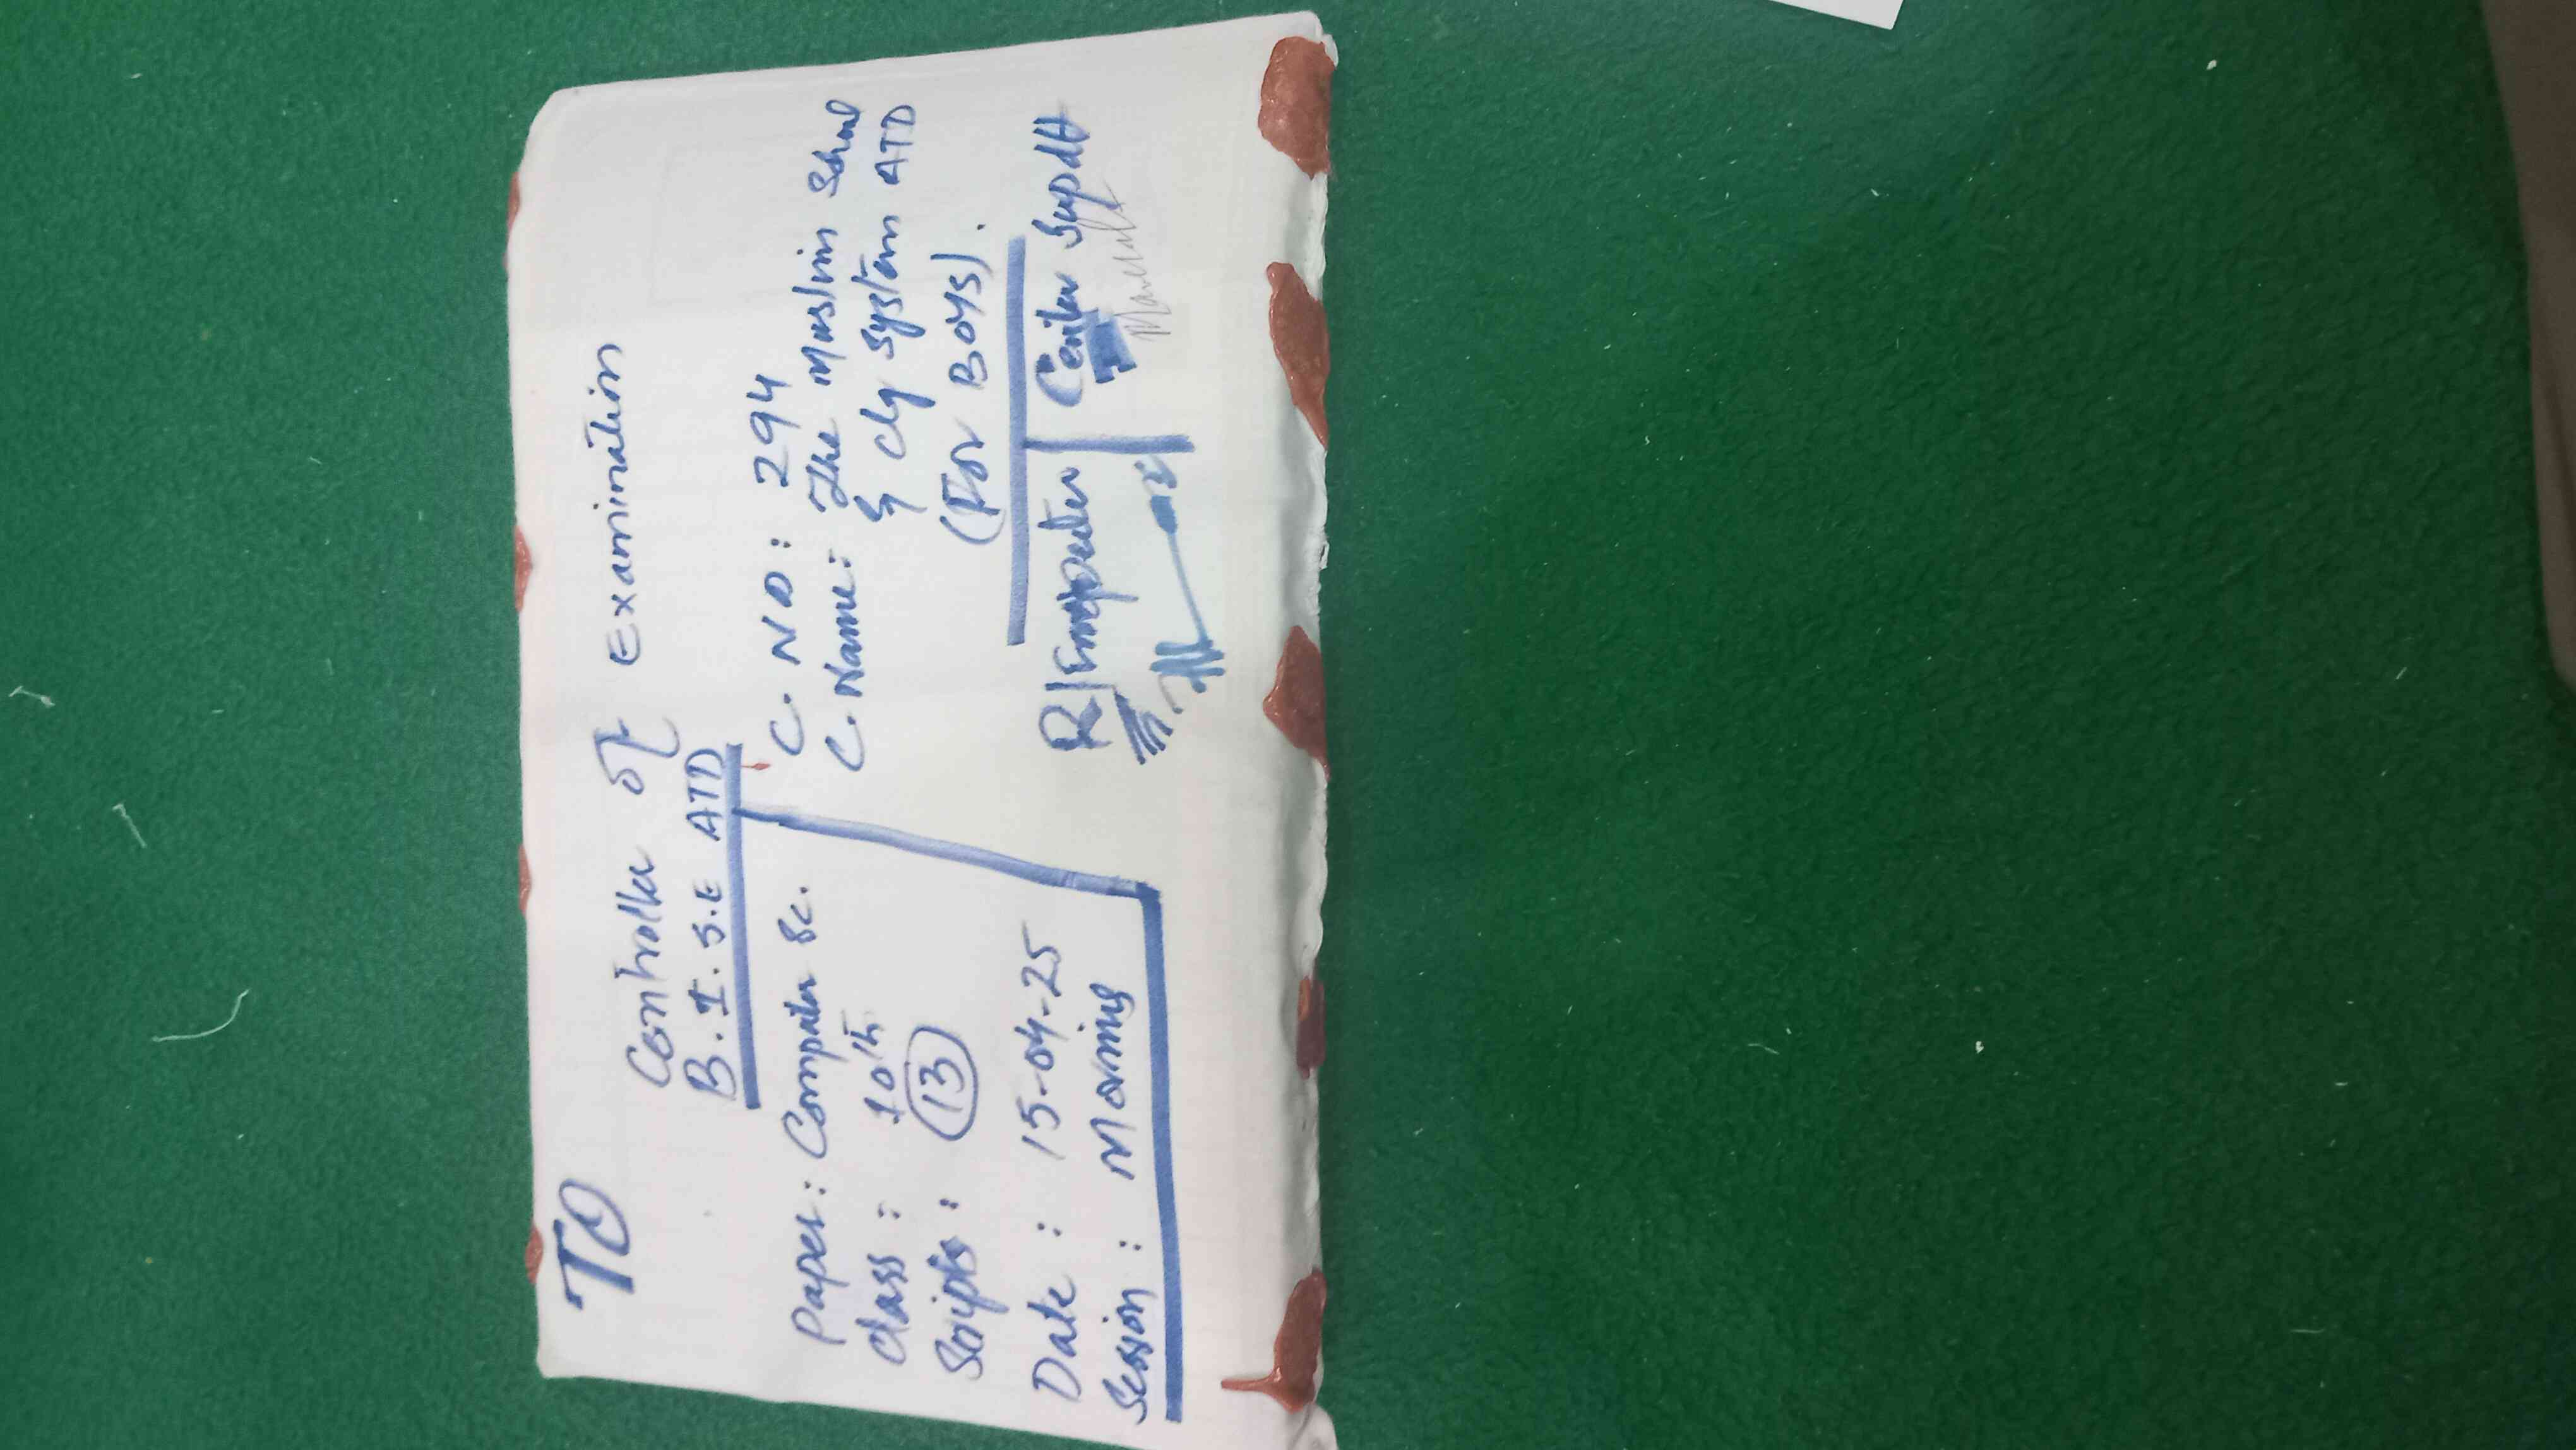 TO
Controller of Examination
B.I.S.E ATD
Paper: Computer Sc.
Class: 10th
Scripts: 13
Date: 15-04-25
Session: Morning
C. NO: 294
C. Name: The Muslim School
& Clg System ATD
(For Boys).
R/Inspector
Center Supdtt